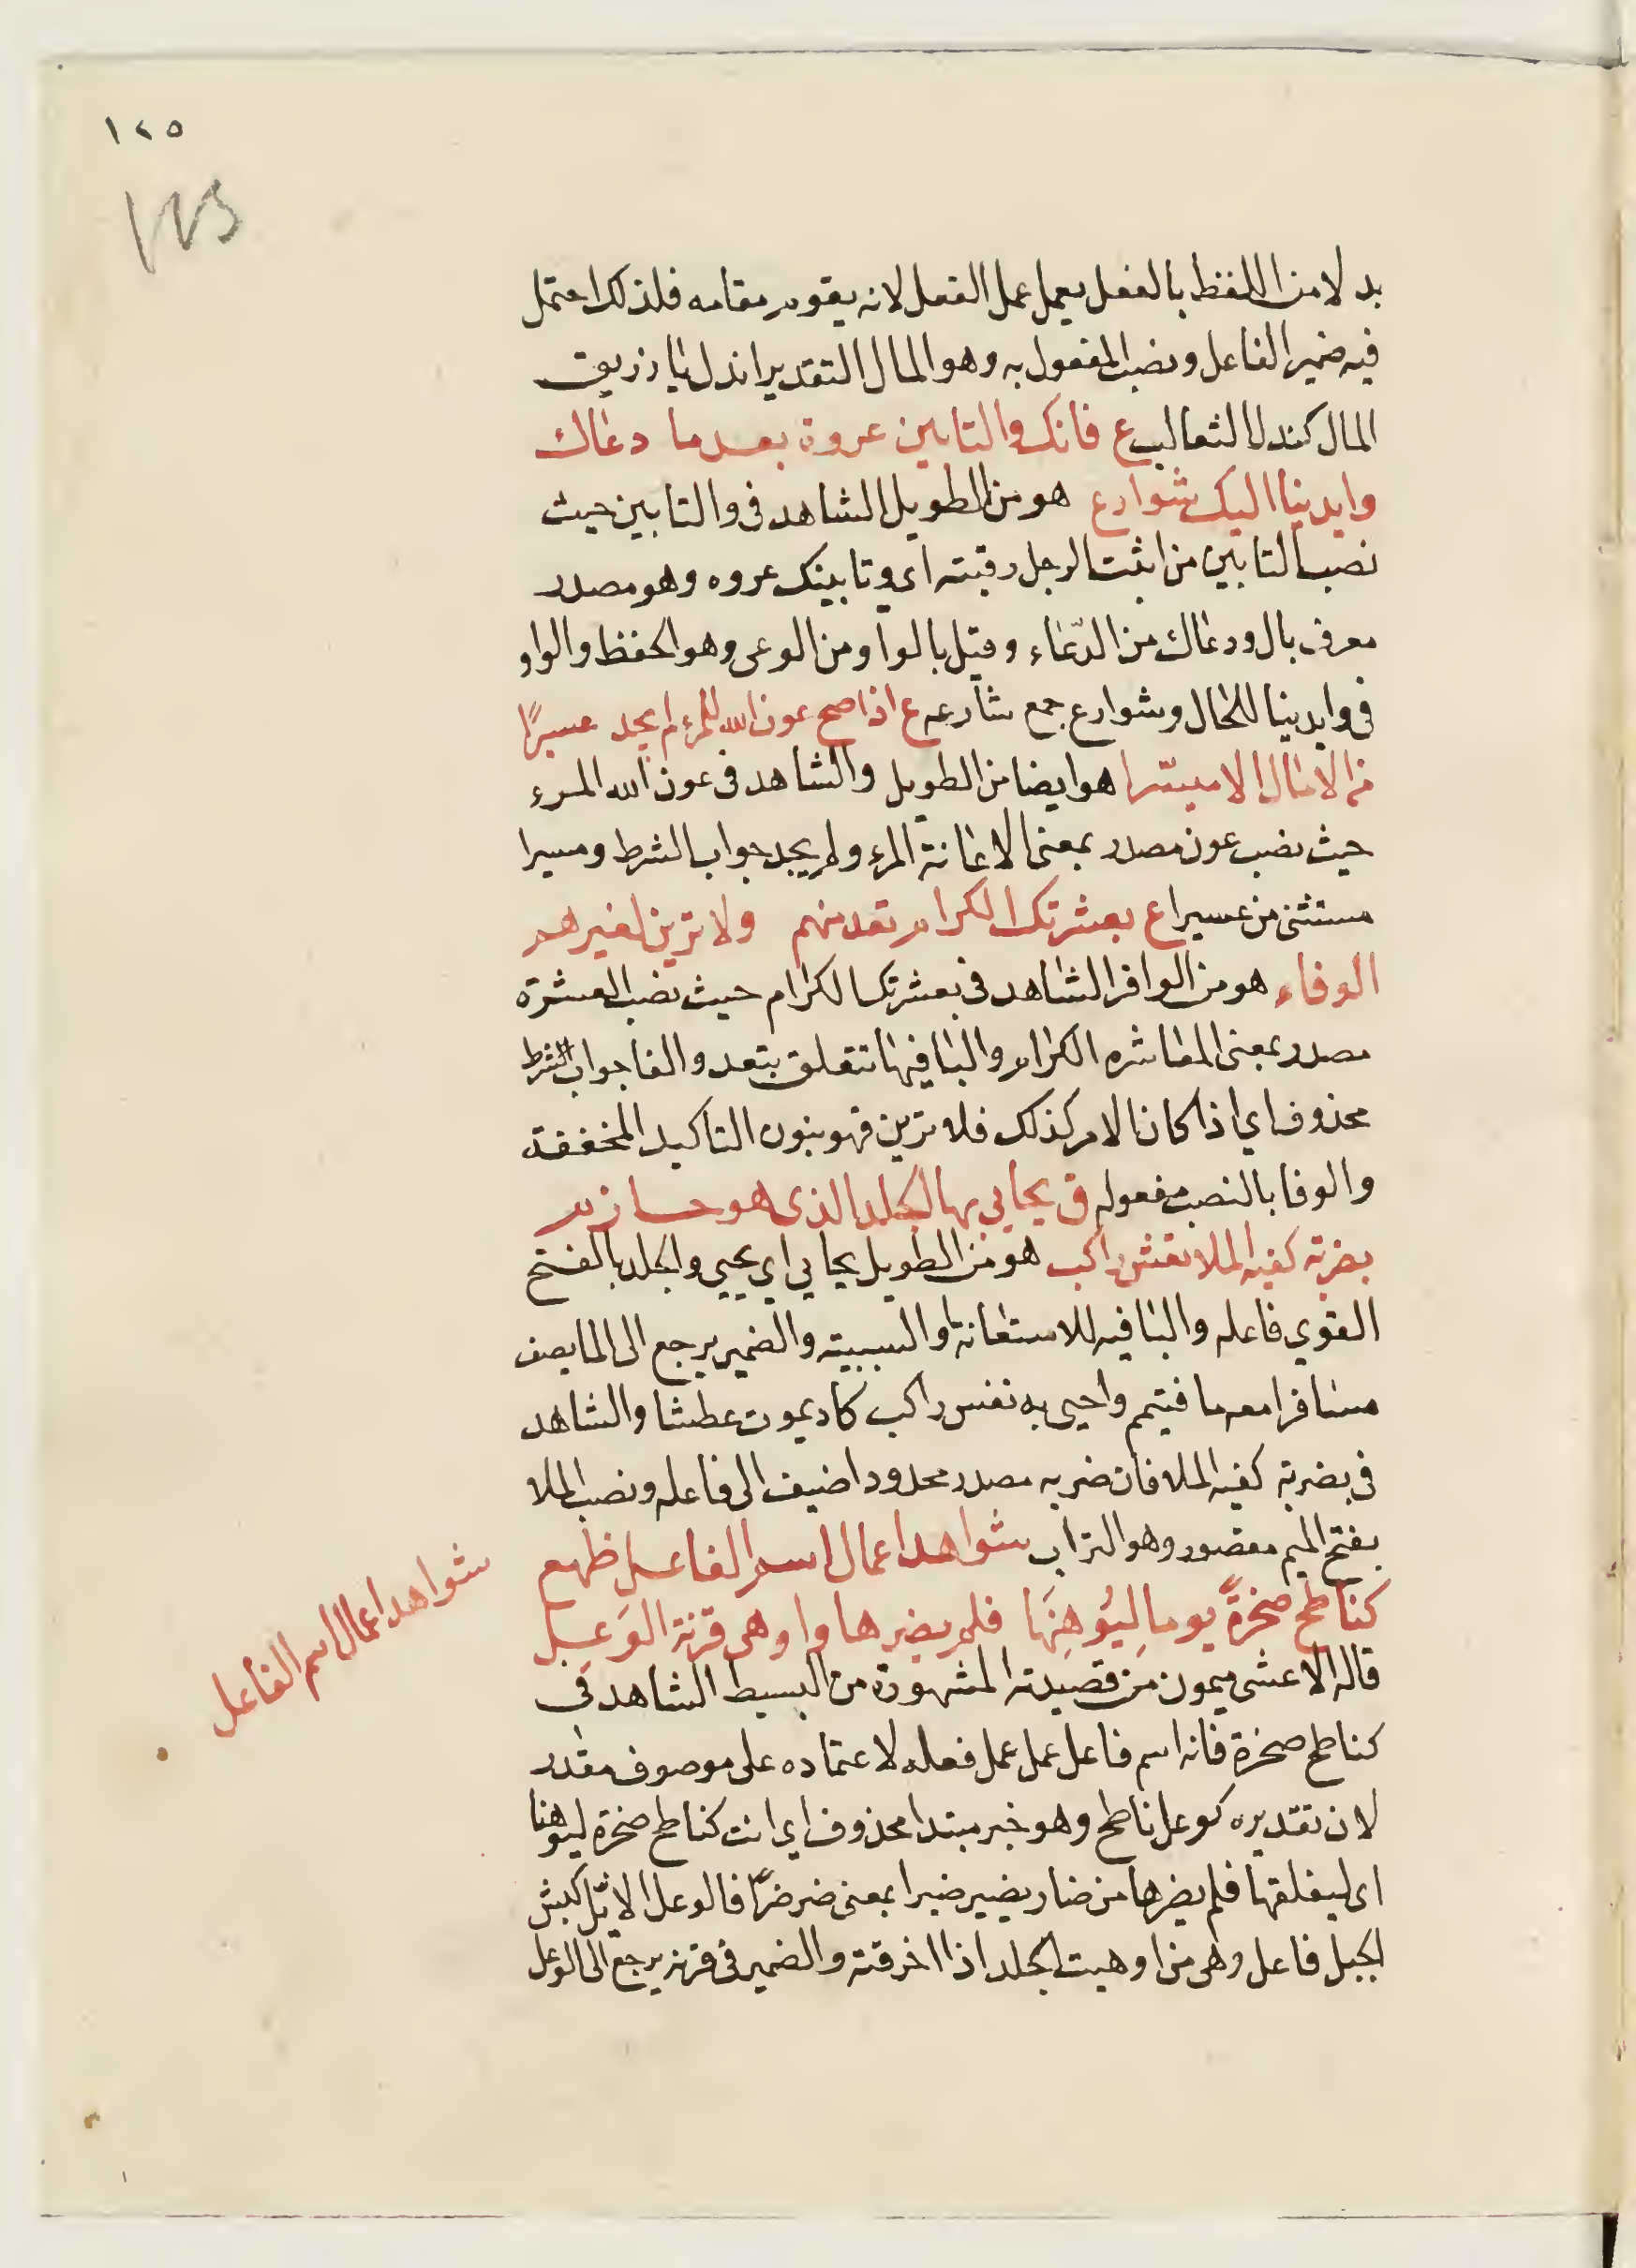 ١٢٥
١٢٥
بدلا من اللفظ بالفعل يعمل عمل الفعل لانه يقوم مقامه فلذلك احتمل
فيه ضمير الفاعل ونصب المفعول به وهو المال التقدير اندل يا زريق
المال كندل الثعالب ع فانك والتابين عروة بعد ما دعاك
وايدينا اليك شوارع هو من الطويل الشاهد في والتابين حيث
نصب التابين من ابنت الرجل رقبته اي وتابينك عروه وهو مصدر
معرف بال ودعاك من الدّعاء وقيل بالواو من الوعى وهو الحفظ والواو
في وايدينا للحال وشوارع جمع شارعه ع اذا صح عون الله للمرء لم يجد عسيرًا
من الامال الا ميسّرا هو ايضا من الطويل والشاهد في عون الله المرء
حيث نصب عون مصدر بمعنى الاعانة المرء ولم يجد جواب الشرط وميسرا
مستثنى من عسيرا ع بعشرتك الكرام تعد منهم ولا ترين لغيرهم
الوفاء هو من الوافر الشاهد في بعشرتك الكرام حيث نصب العشرة
مصدر بمعنى المعاشره الكرام والبا فيها تتعلق بتعد والفا جواب الشرط
محذوف اي اذا كان الامر كذلك فلا ترين فهو بنون التاكيد المخففة
والوفا بالنصب مفعوله ق يحايي بها الجلد الذى هو حازم
بضربة كفيه الملا نفس راكب هو من الطويل يحايي اي يحيي والجلد بالفتح
القوي فاعله والبا فيه للاستعانة او السببيته والضمير يرجع الى الما يصف
مسافرا معه ما فتيمم واحيى به نفس راكب كاد يموت عطشا والشاهد
في بضربة كفيه الملا فان ضربه مصدر محدود اضيف الى فاعله ونصب الملا
بفتح الميم مقصور وهو التراب شواهد اعمال اسم الفاعل ظهع
كناطح صخرةً يوما لِيُوهِنَها فلم يضرها واوهى قرنه الوَعِل
قاله الاعشى ميمون من قصيدته المشهورة من البسيط الشاهد في
كناطح صخرة فانه اسم فاعل عمل عمل فعله لاعتماده على موصوف مقدر
لان تقديره كوعل ناطح وهو خبر مبتدا محذوف اي انت كناطح صخرة ليوهنها
اى ليفلقها فلم يضرها من ضار يضير ضيرا بمعنى ضر ضرًّا فالوعل الايّل كبش
الجبل فاعل وهى من اوهيت الجلد اذا اخرقته والضمير في قرنه يرجع الى الوعل
شواهد اعمال اسم الفاعل